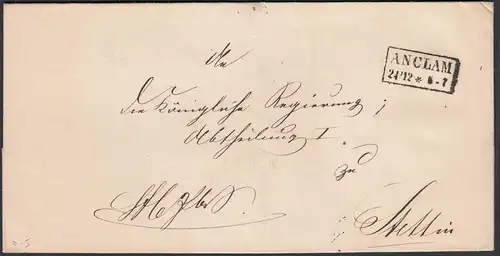 An
ANCLAM
24/12 * 6-7
die Königliche Regierung,
Abtheilung I.
zu
Stettin